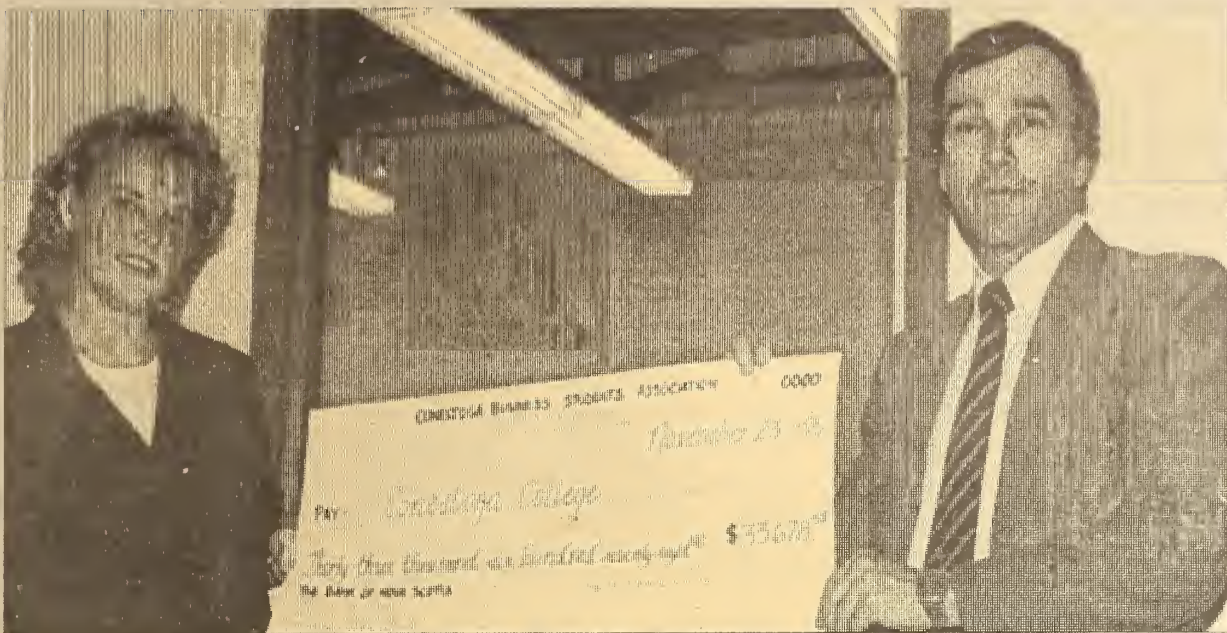 CONESTOGA BUSINESS STUDENTS ASSOCIATION 0000
November 23
PAY Conestoga College
Thirty three thousand six hundred $33,678
THE BANK OF NOVA SCOTIA